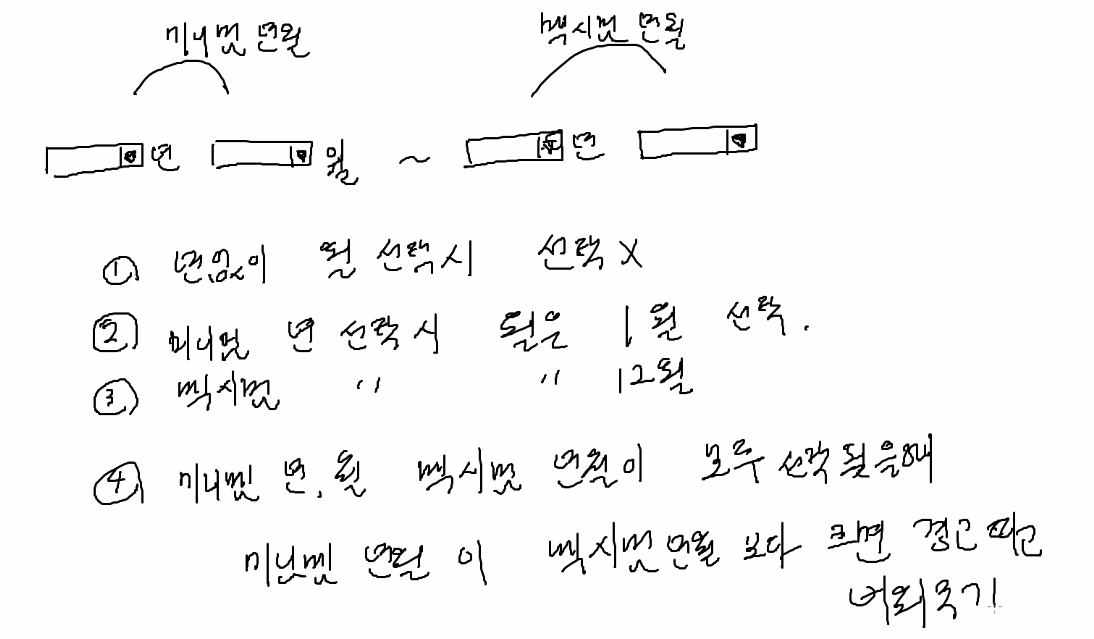 미니멈 년월 맥시멈 년월
년 월 ~ 년
① 년없이 월 선택시 선택 X
② 미니멈 년 선택시 월은 1월 선택.
③ 맥시멈 〃 〃 12월
④ 미니멈 년, 월 맥시멈 년월이 모두 선택됬을때
미니멈 년월이 맥시멈년월 보다 크면 경고띄고